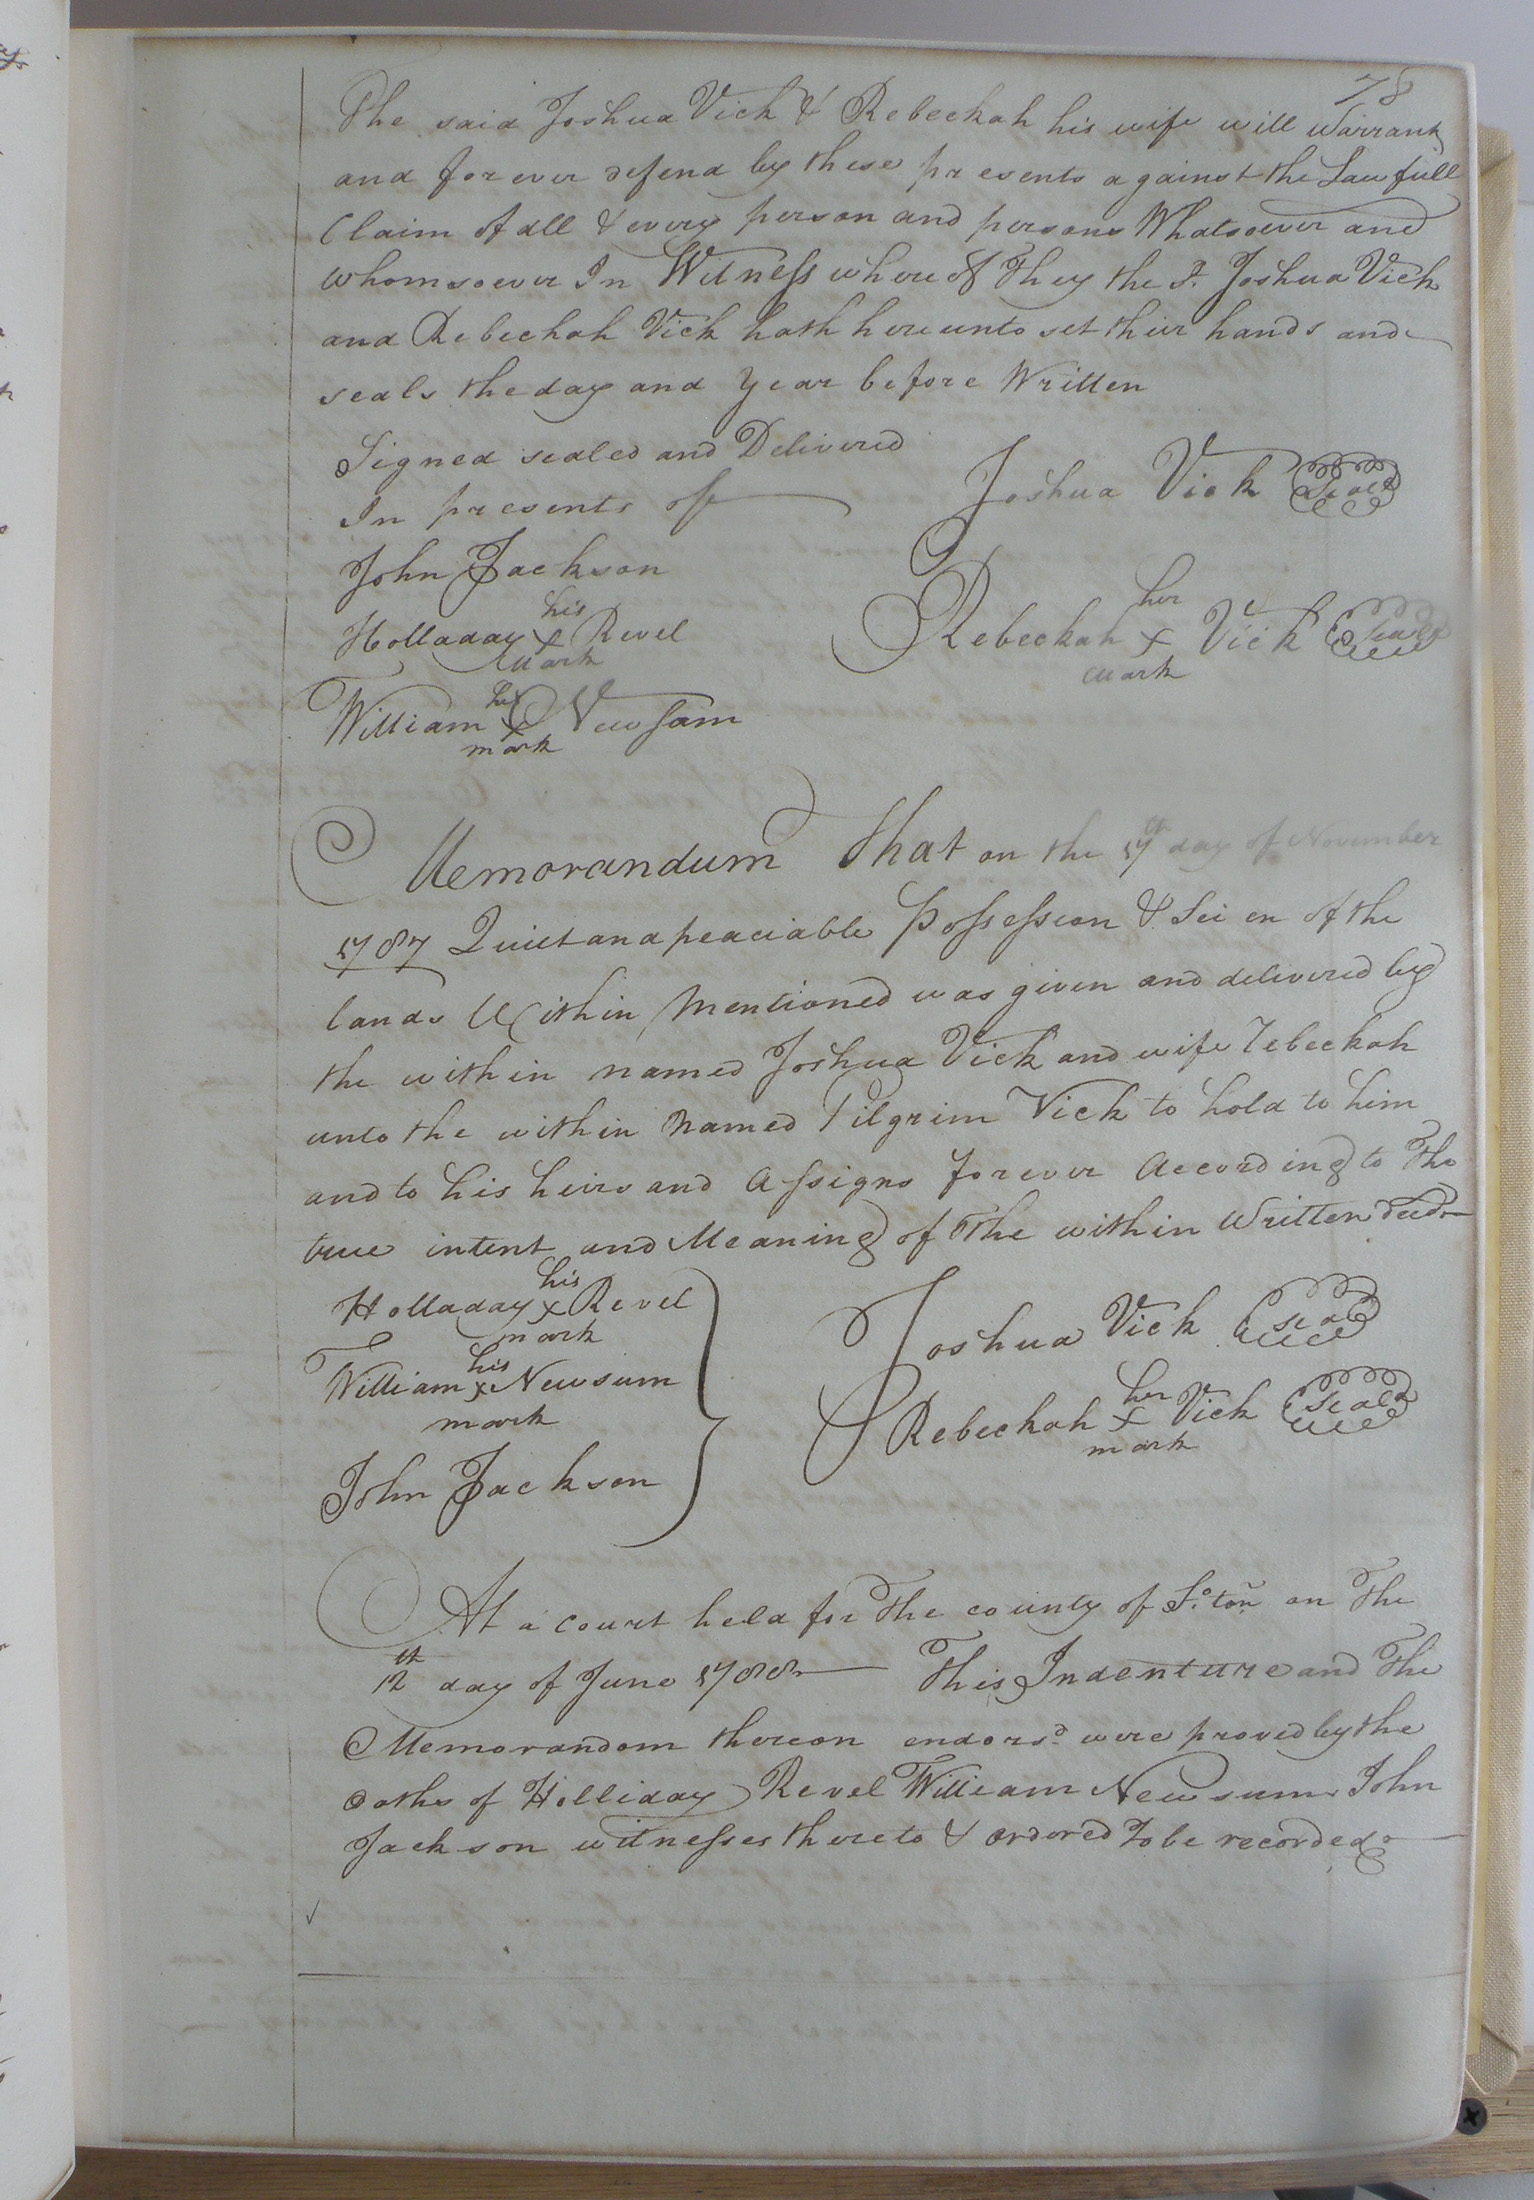 78
The said Joshua Vick & Rebeckah his wife will warrant
and forever defend by these presents against the Lawfull
Claim of all & every person and persons Whatsoever and
whomsoever In Witness whereof They the sd. Joshua Vick
and Rebeckah Vick hath hereunto set their hands and
seals the day and year before Written
Signed sealed and Delivered
In presents of
Joshua Vick Seal
John Jackson
her
Rebeckah x Vick Seal
mark
his
Holladay x Revel
mark
his
William x Newsam
mark
Memorandum that on the 17th day of November
1787 Quiet and peaciable Possession & Seien of the
lands Within Mentioned was given and delivered by
the within named Joshua Vick and wife Rebeckah
unto the within Named Pilgrim Vick to hold to him
and to his heirs and Assigns forever According to The
true intent and Meaning of The within Written deed
his
Holladay x Revel
mark
his
William x Newsum
mark
John Jackson
Joshua Vick Seal
her
Rebeckah x Vick Seal
mark
At a court held for The county of So.ton on The
12th day of June 1788 This Indenture and The
Memorandom thereon endorsd. were proved by the
oaths of Holliday Revel William Newsum John
Jackson witnesses thereto & ordered to be recorded